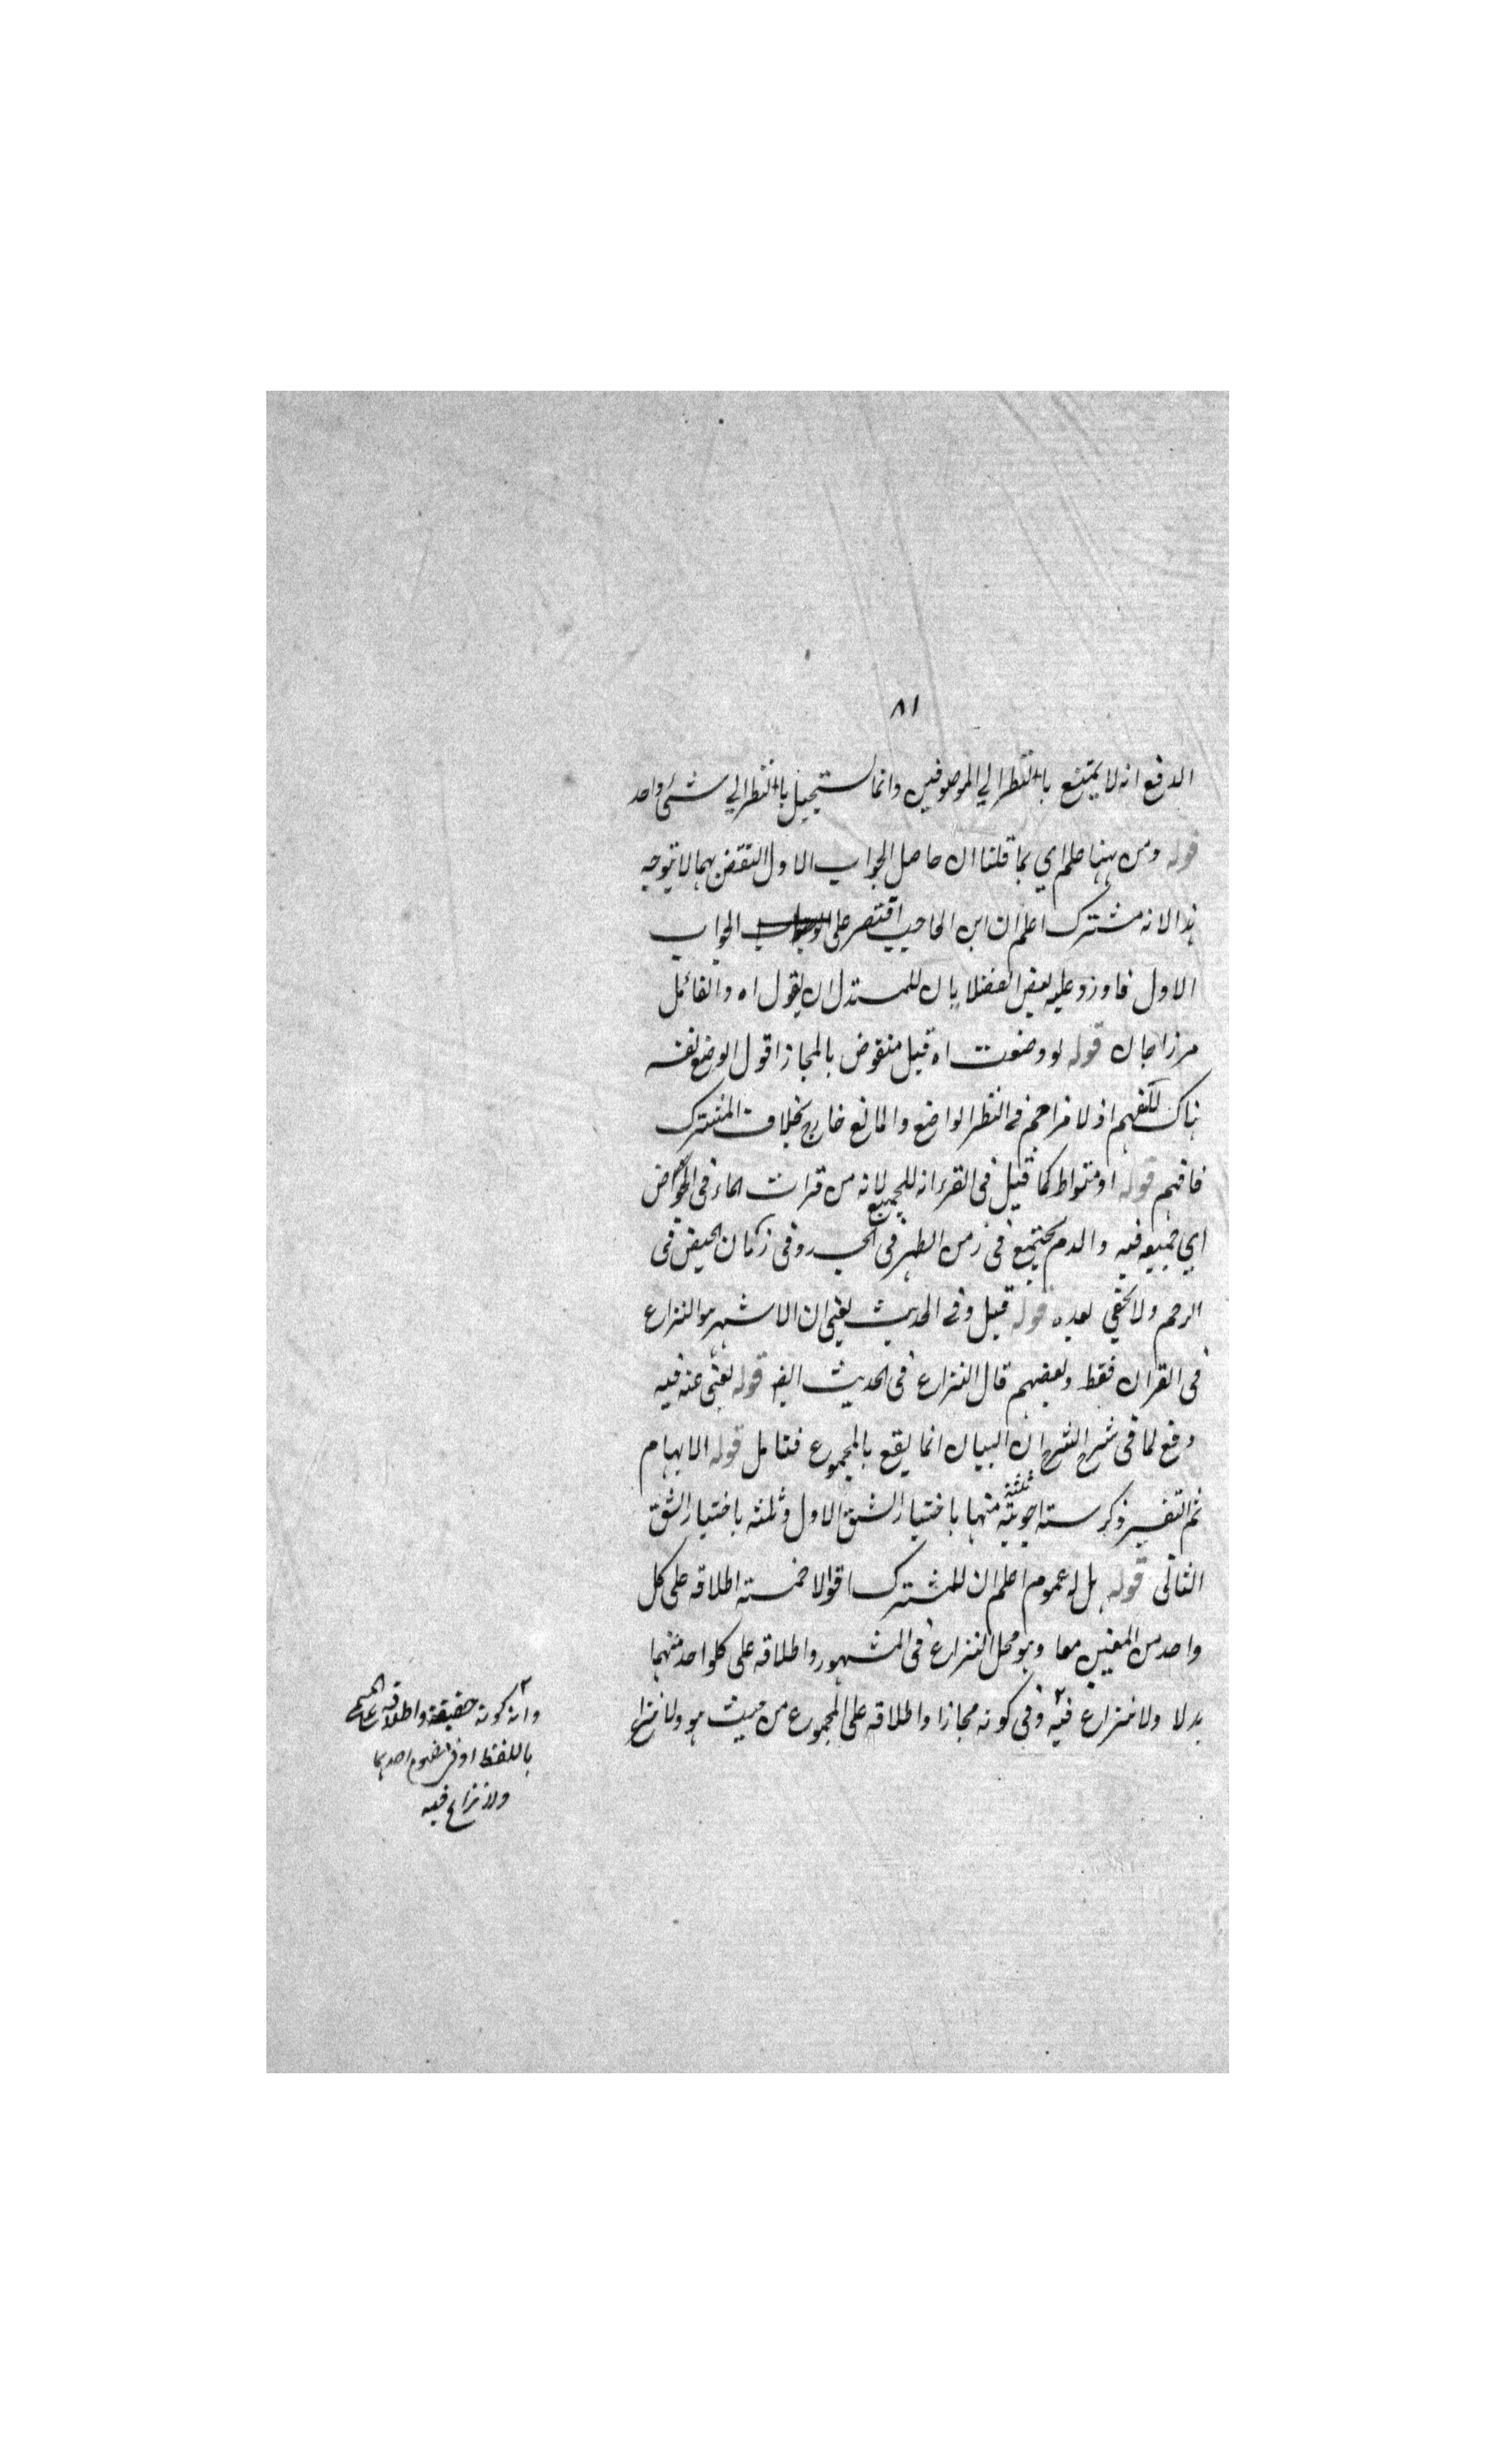 ٨١
الدفع انه لا يمتنع بالنظر الي الموصوفين وانما يستحيل بالنظر الي شئ واحد
قوله ومن ههنا علم اي بما قلنا ان حاصل الجواب الاول النقض بهما لا توجه
هذا لانه مشترك اعلم ان ابن الحاجب اقتصر على الجواب
الاول فاورد عليه بعض الفضلا بان للمستدل ان يقول اه والقائل
مرزا جان قوله لو وضعت اه قيل منقوض بالمجاز اقول الوضع نفسه
هناك للتفهم اذ لا مزاحم في النظر الواضع والمانع خارج بخلاف المشترك
فافهم قوله او متواط كما قيل في القرء انه للجميع لانه من قرات الماء في الحوض
اي جمعه فيه والدم يجتمع في زمن الطهر في الجسد وفي زمان الحيض في
الرحم ولا يخفى بعده قوله قيل وفي الحديث يعني ان الاشهر هو النزاع
في القران فقط وبعضهم قال النزاع في الحديث ايضا قوله يعني عنه فيه
دفع لما في شرح الشرح ان البيان انما يقع بالمجموع فتامل قوله الابهام
ثم التفسير ذكر ستة اجوبة ثلثة منها باختيار الشق الاول وثلثه باختيار الشق
الثاني قوله بل له عموم اعلم ان للمشترك اقوالا خمسته اطلاقه على كل
واحد من المعنيين معا وهو محل النزاع في المشهور واطلاقه على كلواحد منهما
بدلا ولا نزاع فيه ٢ وفي كونه مجازا واطلاقه على المجموع من حيث هو ولا نزاع
٢ وانه كونه حقيقة واطلاقه على المسمى
باللفظ او في مفهوم احدهما
ولا نزاع فيه